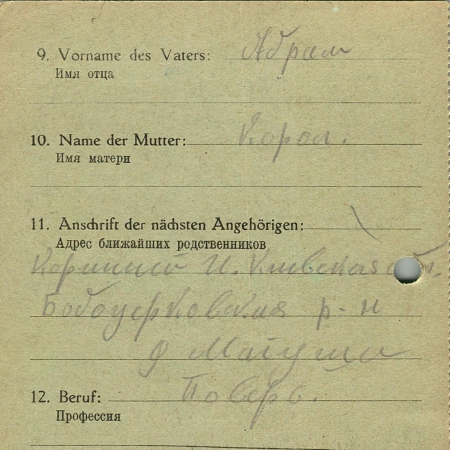 9. Vorname des Vaters: Абрам
Имя отца
10. Name der Mutter: Корол.
Имя матери
11. Anschrift der nächsten Angehörigen:
Адрес ближайших родственников
И. Киевская обл.
р-н
12. Beruf: Повар.
Профессия